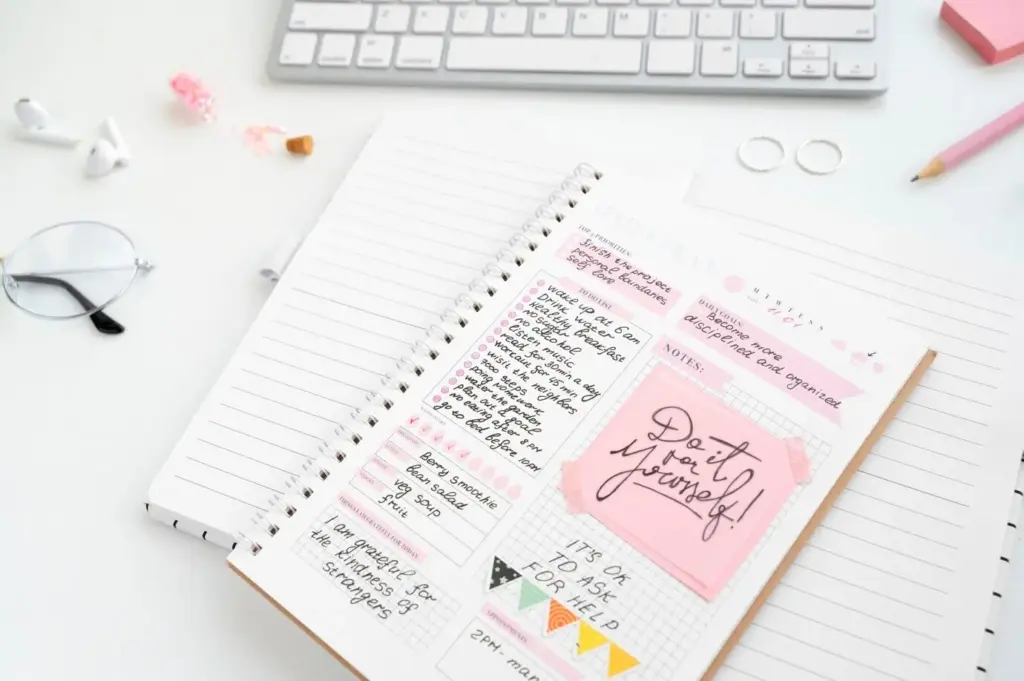 TOP 3 PRIORITIES:
finish the project
personal boundaries
self love
TO DO LIST:
wake up at 6 am
Drink water
Healthy breakfast
no sugar
no alcohol
listen music
read for 30 min a day
workout for 45 min
wish the neighbors
7000 steps
doing homework
water the garden
plan out a goal
no eating after 8 PM
go to bed before 10PM
Berry smoothie
bean salad
veg soup
fruit
I am grateful for
the kindness of
strangers
M T W T F S S
DAILY GOALS:
Become more
disciplined and organized
NOTES:
Do it
for
Yourself!
IT'S OK
TO ASK
FOR HELP
APPOINTMENTS
2PM - man
Z X C V B N M